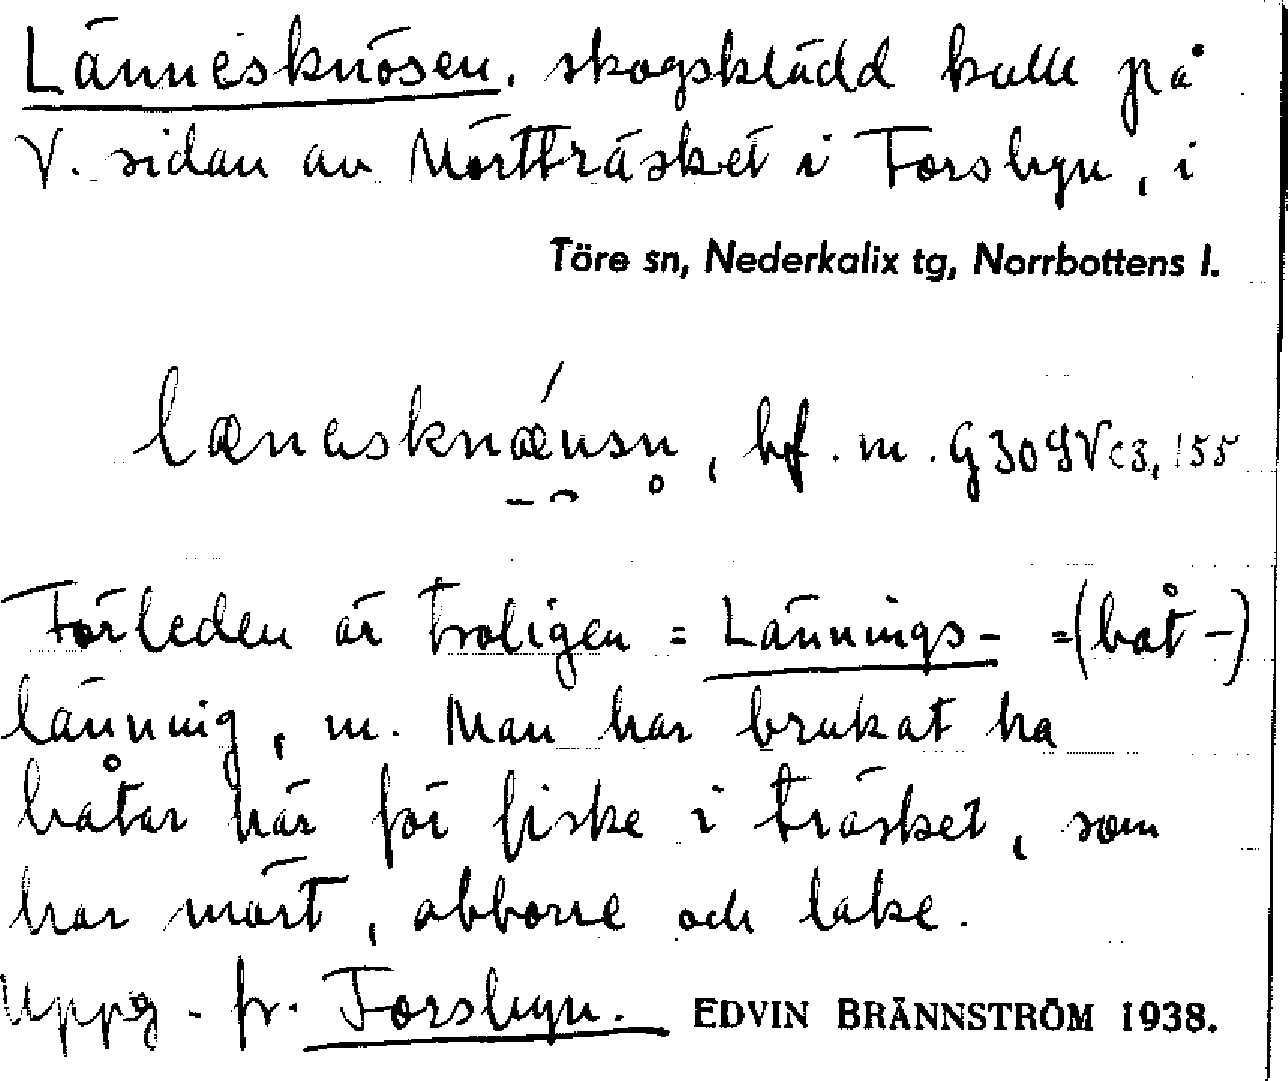 Lännesknösen, skogsklädd kulle på
V. sidan av Mörtträsket i Forsbyn, i
Töre sn, Nederkalix tg, Norrbottens l.
bf. m.
Förleden är troligen = Lännings- =(båt-)
länning, m. Man har brukat ha
båtar här för fiske i träsket, som
har mört, abborre och lake.
Uppg. fr. Forsbyn. EDVIN BRÄNNSTRÖM 1938.